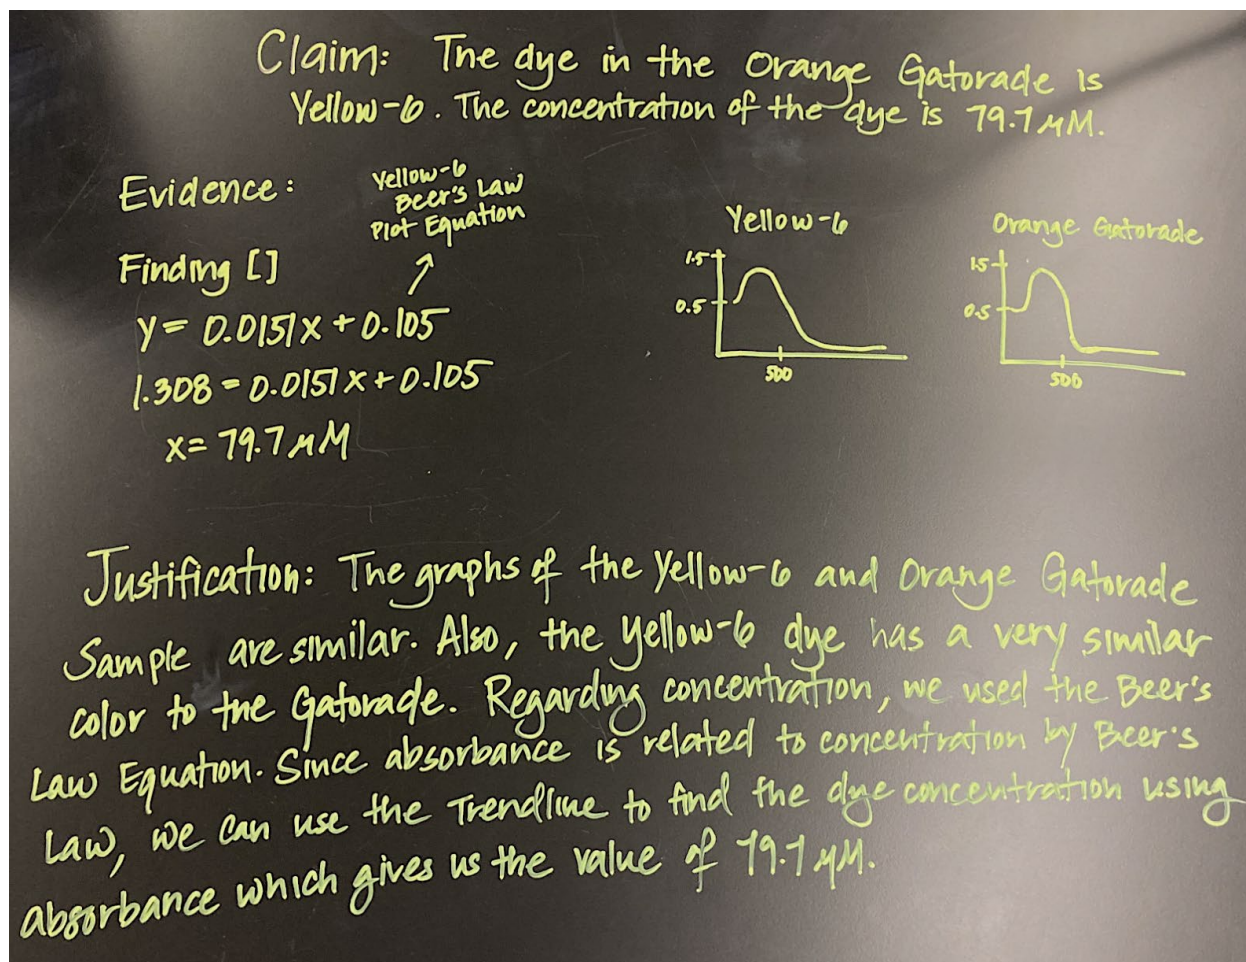 Claim: The dye in the Orange Gatorade is
Yellow-6. The concentration of the dye is 79.7 μM.
Evidence:
Yellow-6
Beer's Law
Plot Equation
Finding []
y = 0.0151x + 0.105
1.308 = 0.0151x + 0.105
x = 79.7 μM
Yellow-6
1.5
0.5
500
Orange Gatorade
1.5
0.5
500
Justification: The graphs of the Yellow-6 and Orange Gatorade
Sample are similar. Also, the yellow-6 dye has a very similar
color to the Gatorade. Regarding concentration, we used the Beer's
Law Equation. Since absorbance is related to concentration by Beer's
Law, we can use the Trendline to find the dye concentration using
absorbance which gives us the value of 79.7 μM.